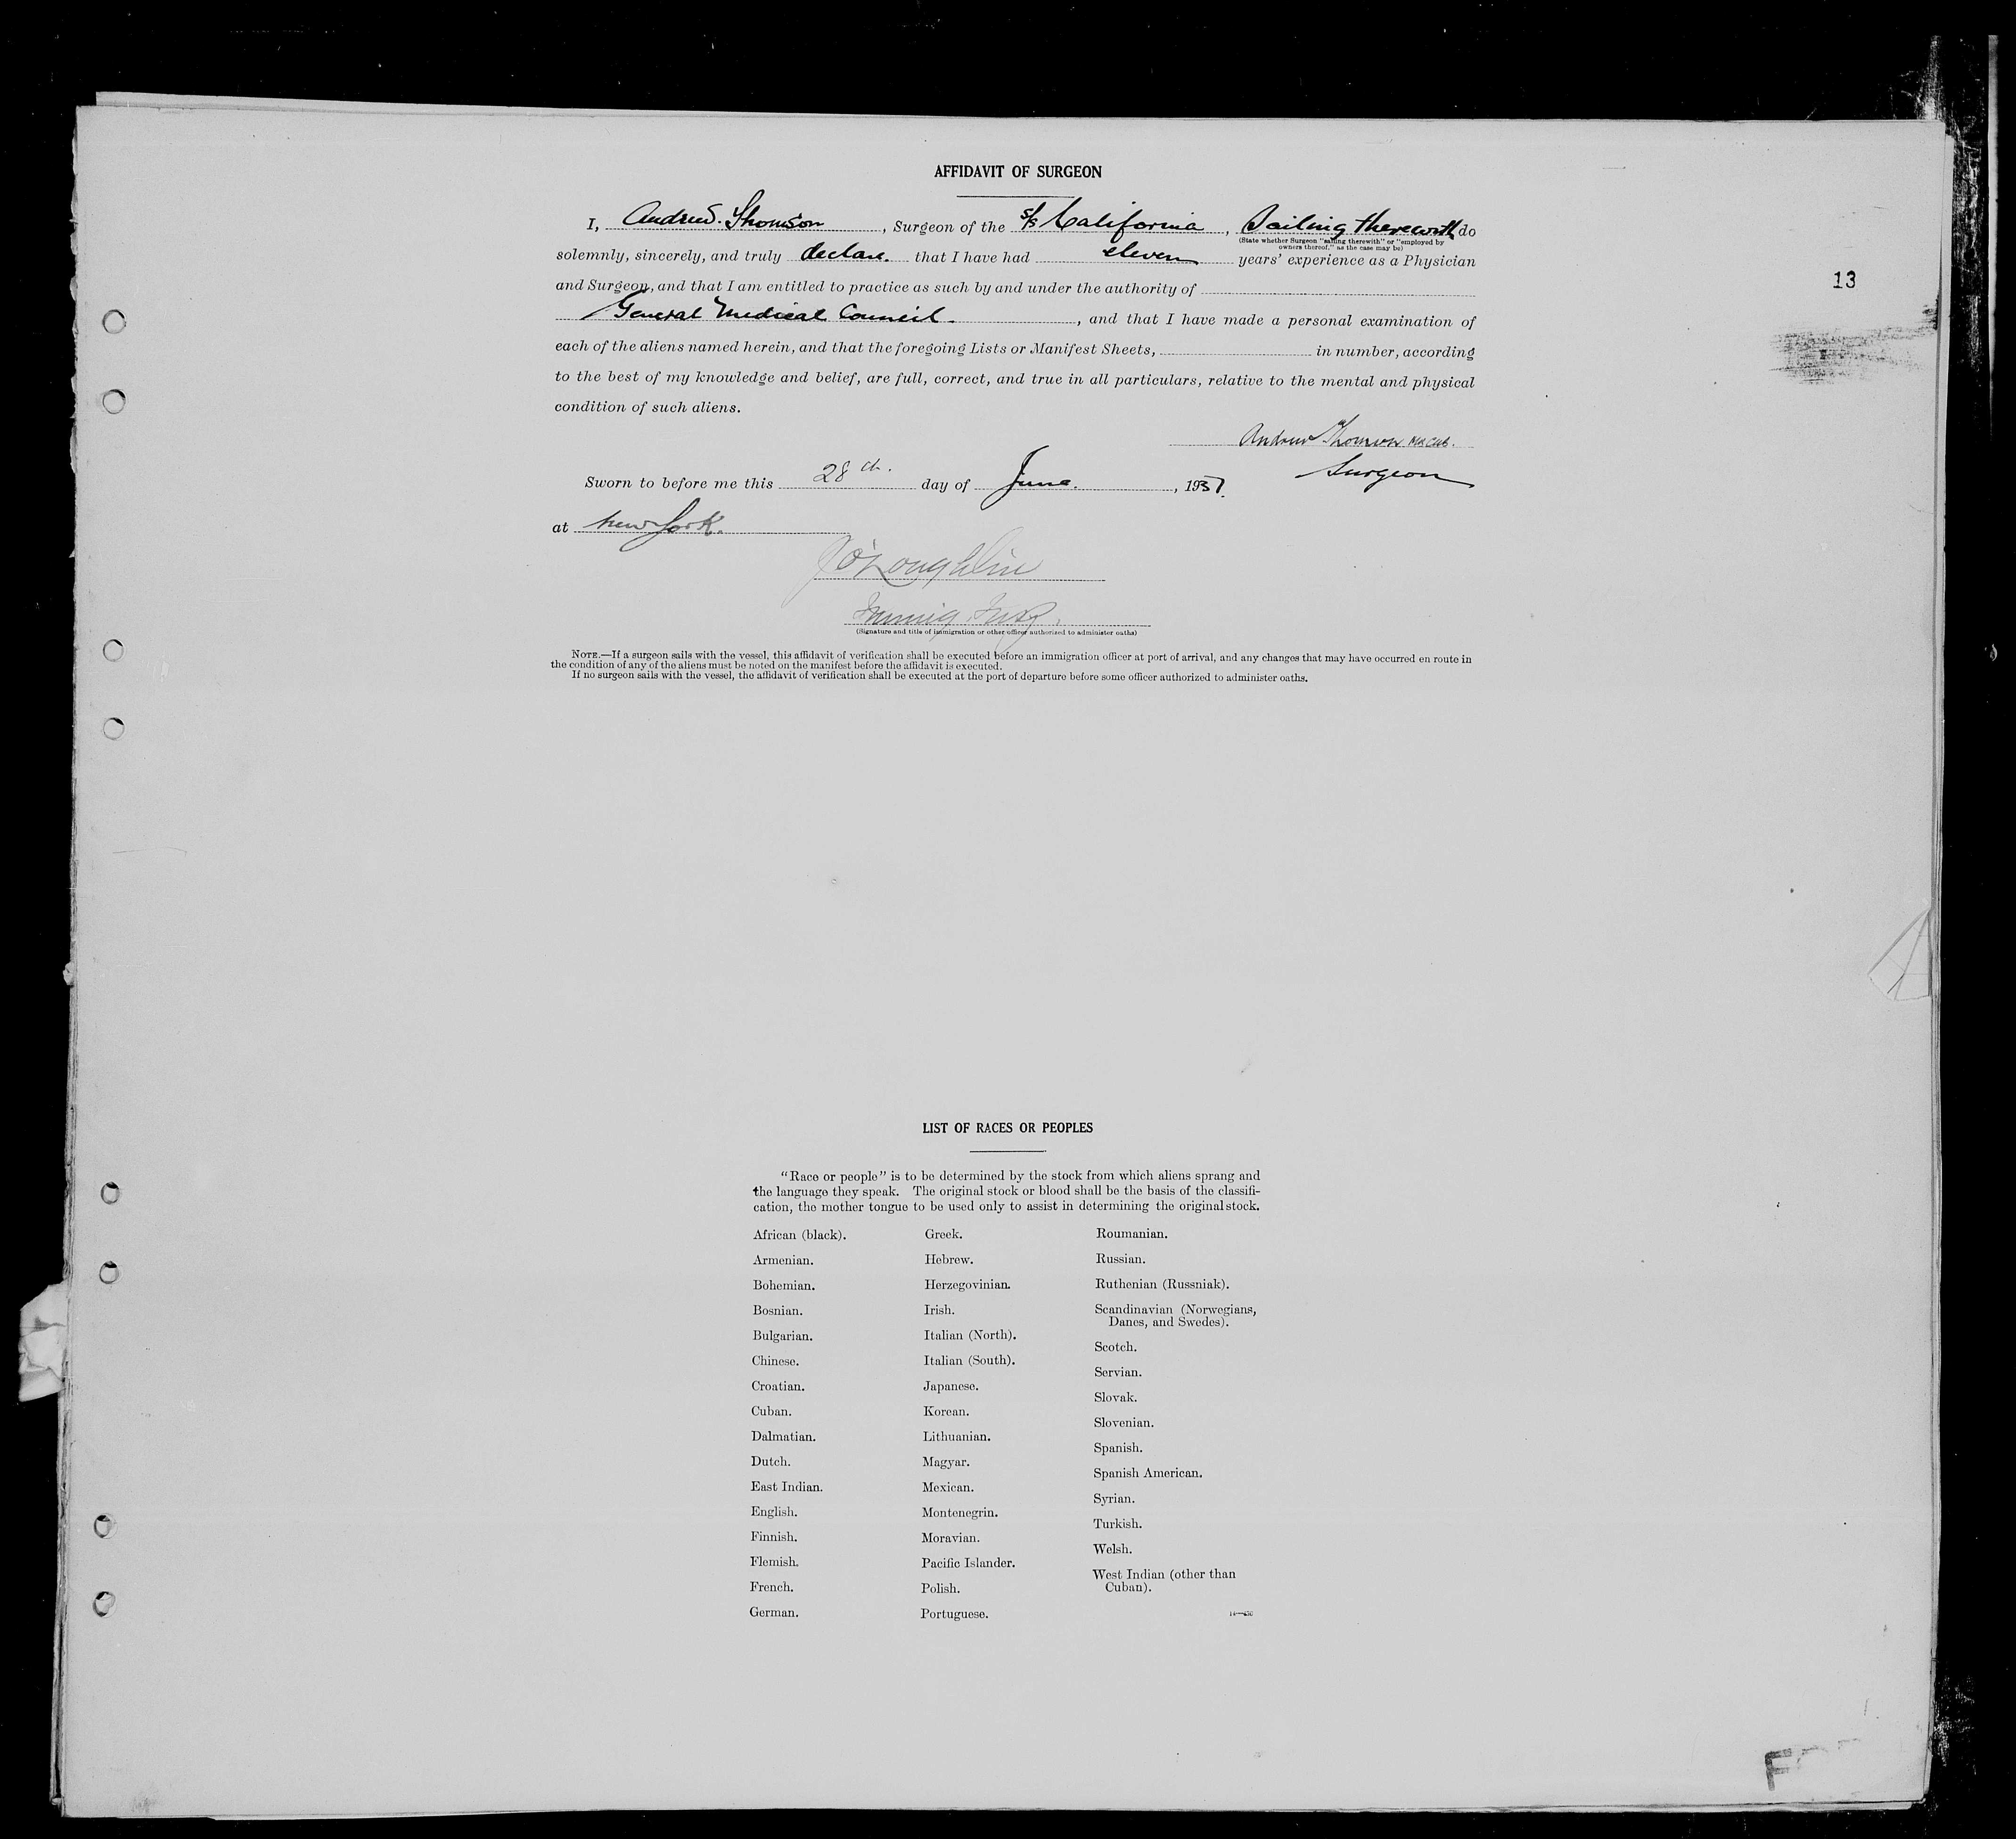 AFFIDAVIT OF SURGEON
I, Andrew Thomson, Surgeon of the s/s California, Sailing therewith do
(State whether Surgeon "sailing therewith" or "employed by
owners thereof," as the case may be)
solemnly, sincerely, and truly declare. that I have had eleven years' experience as a Physician
13
and Surgeon, and that I am entitled to practice as such by and under the authority of
General Medical Council. , and that I have made a personal examination of
each of the aliens named herein, and that the foregoing Lists or Manifest Sheets, in number, according
to the best of my knowledge and belief, are full, correct, and true in all particulars, relative to the mental and physical
condition of such aliens.
Andrew Thomson
Surgeon
Sworn to before me this 28th. day of June. , 1937.
at New York.
O'Loughlin
Immig. Insp.
(Signature and title of immigration or other officer authorized to administer oaths)
NOTE.—If a surgeon sails with the vessel, this affidavit of verification shall be executed before an immigration officer at port of arrival, and any changes that may have occurred en route in
the condition of any of the aliens must be noted on the manifest before the affidavit is executed.
If no surgeon sails with the vessel, the affidavit of verification shall be executed at the port of departure before some officer authorized to administer oaths.
LIST OF RACES OR PEOPLES
"Race or people" is to be determined by the stock from which aliens sprang and
the language they speak. The original stock or blood shall be the basis of the classifi-
cation, the mother tongue to be used only to assist in determining the original stock.
African (black).
Armenian.
Bohemian.
Bosnian.
Bulgarian.
Chinese.
Croatian.
Cuban.
Dalmatian.
Dutch.
East Indian.
English.
Finnish.
Flemish.
French.
German.
Greek.
Hebrew.
Herzegovinian.
Irish.
Italian (North).
Italian (South).
Japanese.
Korean.
Lithuanian.
Magyar.
Mexican.
Montenegrin.
Moravian.
Pacific Islander.
Polish.
Portuguese.
Roumanian.
Russian.
Ruthenian (Russniak).
Scandinavian (Norwegians,
Danes, and Swedes).
Scotch.
Servian.
Slovak.
Slovenian.
Spanish.
Spanish American.
Syrian.
Turkish.
Welsh.
West Indian (other than
Cuban).